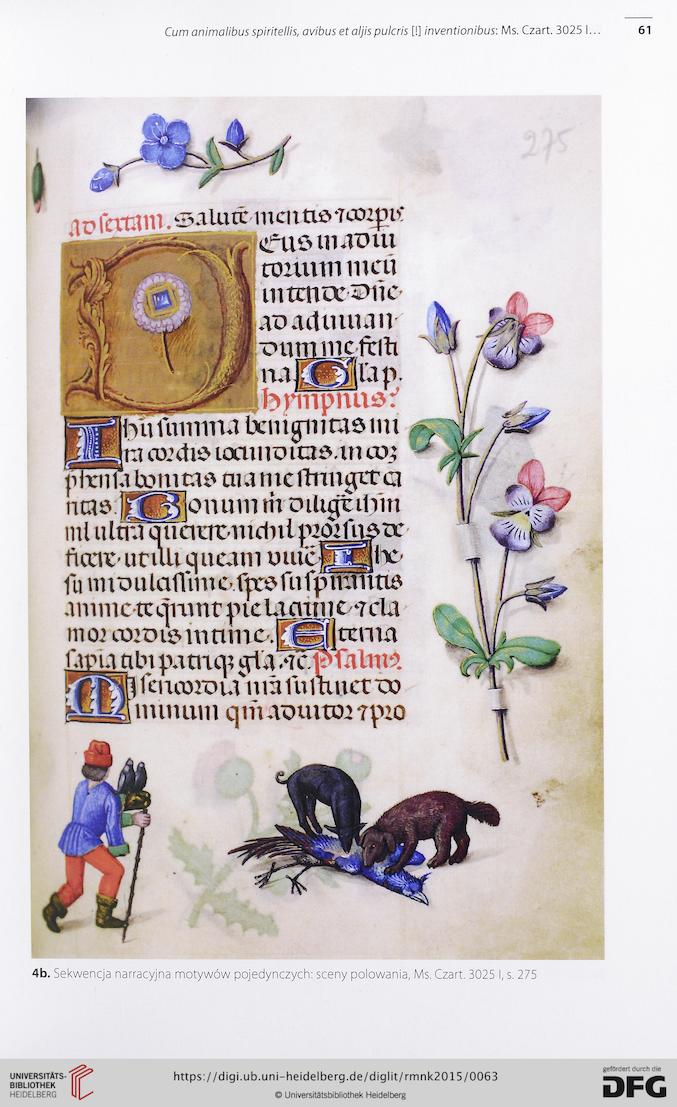 Cum animalibus spiritellis, avibus et aljis pulcris [!] inventionibus: Ms. Czart. 3025 I… 61
275
ad sextam. Salutē mentis ⁊ corpis
Eus in adiu
torium meū
intende Dn̄e
ad adiuuan
dum me festi
na G l'a p.
hympnus:
Ihū summa benignitas mi
ra cordis iocunditas. in cōp
phensa bonitas tua me stringet ca
ritas. Bonum m̄ diligē ihm̄
nil ultra querere nichil prorsus de
ficere ut illi queam viuē Ihe
su mi dulcissime. spes suspirantis
anime te q̄runt pie lacrime ⁊ cla
mor cordis intime. Eterna
sapīa tibi patriq̢ gl'a. ⁊c. Psalmꝰ
Misericordia
minum qm̄ adiutor ⁊ pro
4b. Sekwencja narracyjna motywów pojedynczych: sceny polowania, Ms. Czart. 3025 I, s. 275
UNIVERSITÄTS-
BIBLIOTHEK
HEIDELBERG
https://digi.ub.uni-heidelberg.de/diglit/rmnk2015/0063
© Universitätsbibliothek Heidelberg
gefördert durch die
DFG